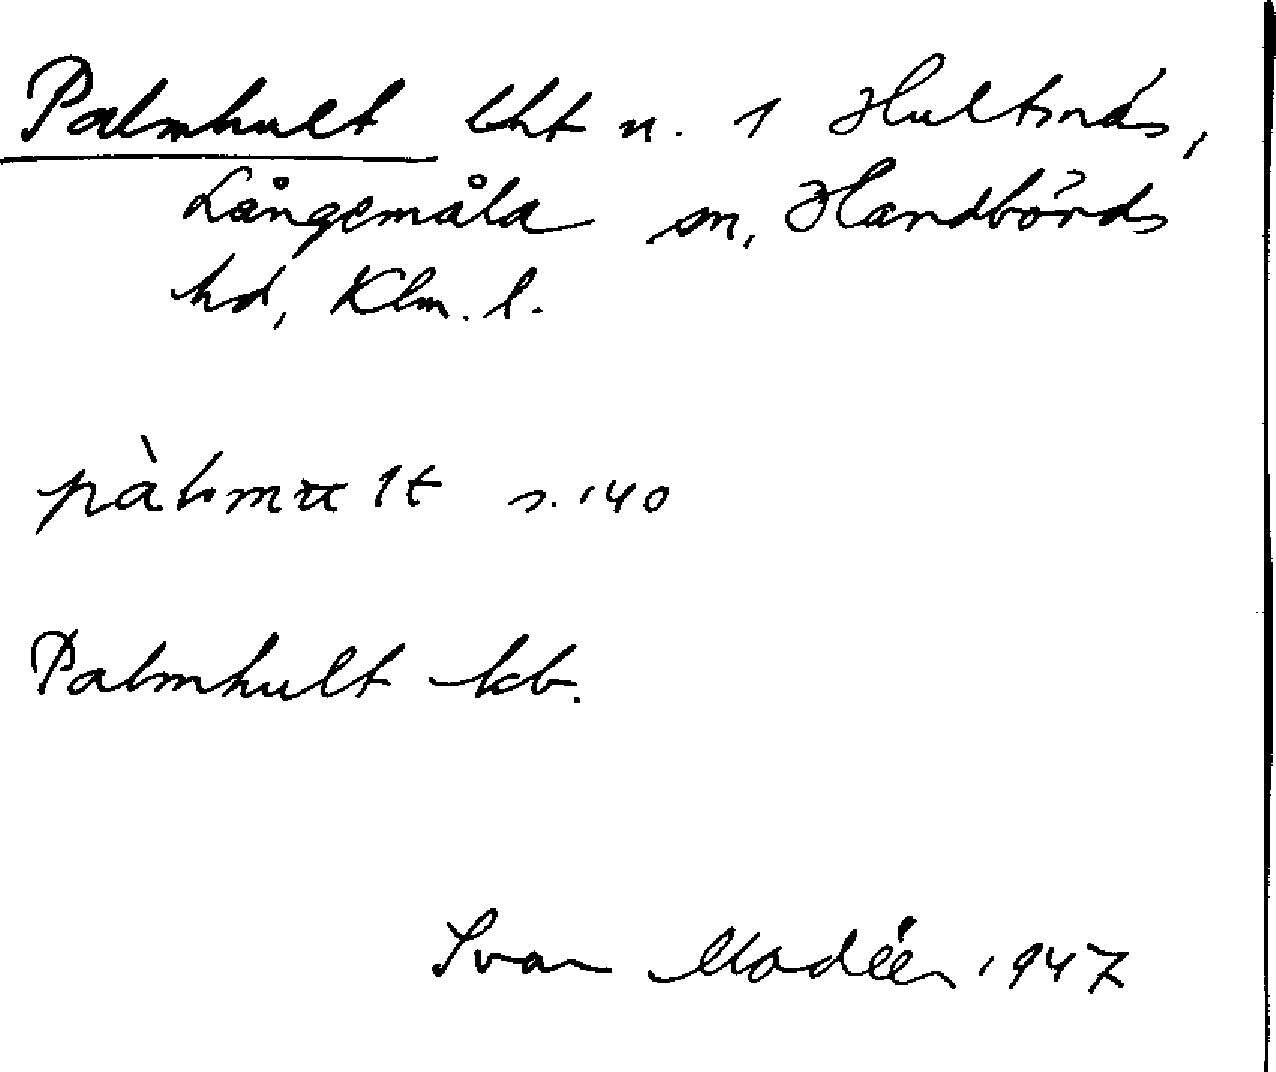 Palmhult lht u. 1 Hultsnäs,
Långemåla sn, Handbörds
hd, Klm. l.
s. 140
Palmhult kb.
Ivar Modéer 1947